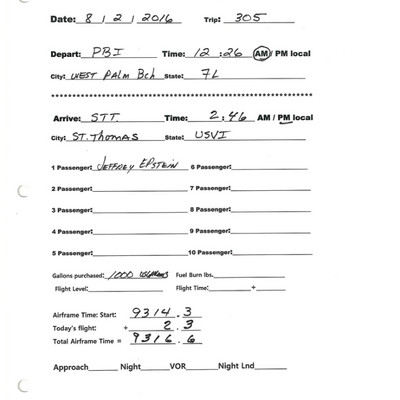 Date: 8 / 2 / 2016 Trip: 305
Depart: PBI Time: 12 : 26 AM / PM local
City: WEST PALM Bch State: FL
Arrive: STT Time: 2 : 46 AM / PM local
City: ST. Thomas State: USVI
1 Passenger: JEFFREY EPSTEIN 6 Passenger:
2 Passenger: 7 Passenger:
3 Passenger: 8 Passenger:
4 Passenger: 9 Passenger:
5 Passenger: 10 Passenger:
Gallons purchased: 1000 Fuel Burn lbs.
Flight Level: Flight Time: ÷
Airframe Time: Start: 9314.3
Today's flight: + 2.3
Total Airframe Time = 9316.6
Approach Night VOR Night Lnd